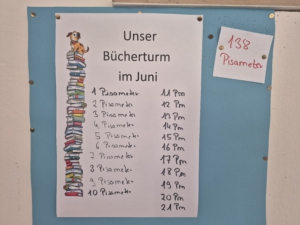 Unser
Bücherturm
im Juni
1 Pisameter
2 Pisameter
3 Pisameter
4 Pisameter
5 Pisameter
6 Pisameter
7 Pisameter
8 Pisameter
9 Pisameter
10 Pisameter
11 Pm
12 Pm
13 Pm
14 Pm
15 Pm
16 Pm
17 Pm
18 Pm
19 Pm
20 Pm
21 Pm
138
Pisameter